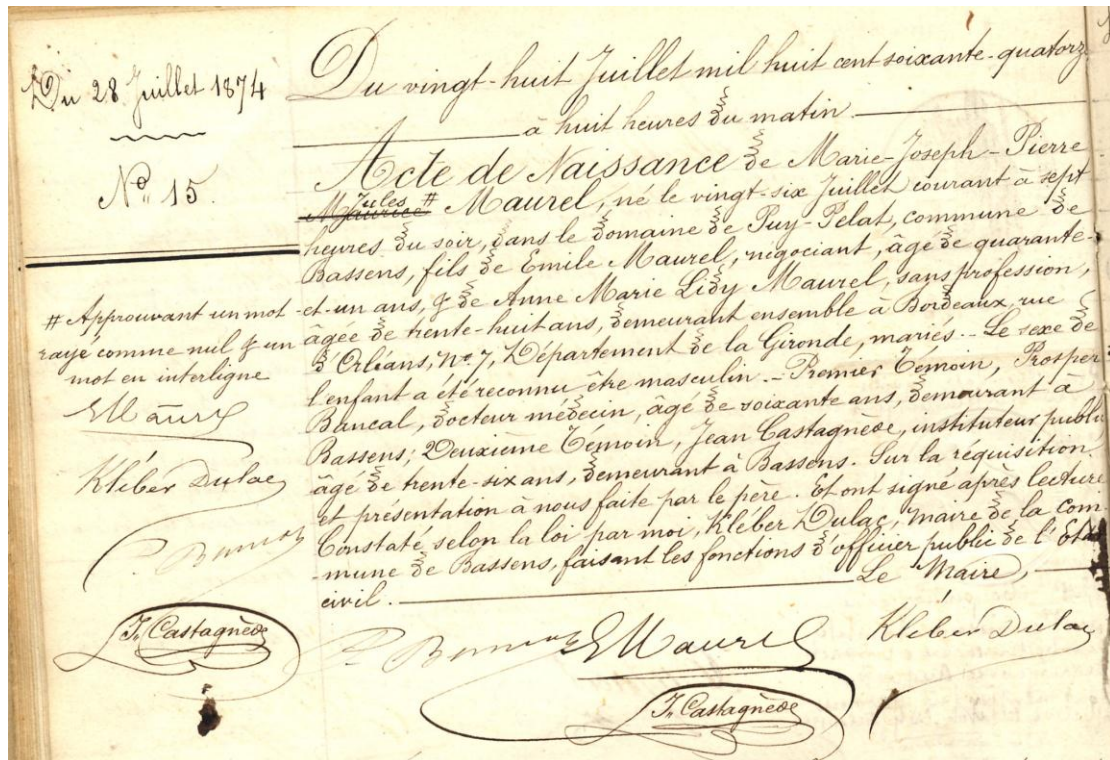 Du 28 Juillet 1874
Nº 15.
# Approuvant un mot
rayé comme nul & un
mot en interligne
EMaurel
Kléber Dulac
P. Bancal
Jn Castagnède
Du vingt-huit Juillet mil huit cent soixante-quatorz
à huit heures du matin.
Acte de Naissance de Marie-Joseph-Pierre
Jules
Maurice # Maurel, né le vingt-six Juillet courant à sept
heures du soir, dans le domaine de Puy-Pelat, commune de
Bassens, fils de Emile Maurel, négociant, âgé de quarante-
-et-un ans, & de Anne Marie Lidy Maurel, sans profession,
âgée de trente-huit ans, demeurant ensemble à Bordeaux, rue
d'Orléans, Nº 7, Département de la Gironde, mariés.- Le sexe de
l'enfant a été reconnu être masculin.- Premier Témoin, Prosper
Bancal, docteur médecin, âgé de soixante ans, demeurant à
Bassens; Deuxième Témoin, Jean Castagnède, instituteur public
âgé de trente-six ans, demeurant à Bassens. Sur la réquisition
et présentation à nous faite par le père. Et ont signé après lecture
Constaté selon la loi par moi, Kléber Dulac, maire de la com-
-mune de Bassens, faisant les fonctions d'officier public de l'Etat
civil.
Le Maire,
P. Bancal EMaurel Kléber Dulac
Jn Castagnède